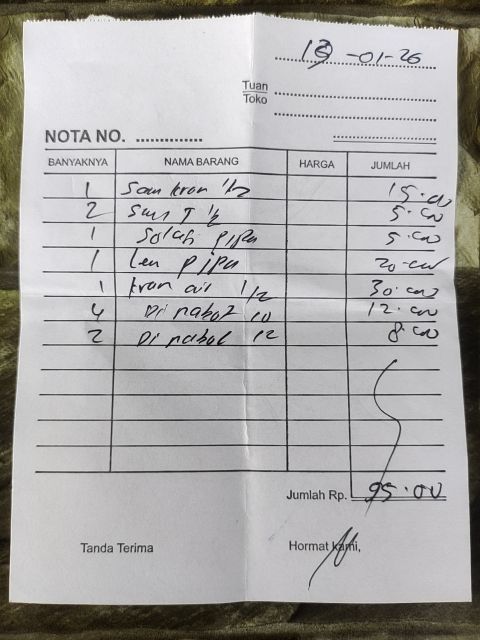 13-01-26
Tuan
Toko
NOTA NO. ..............
BANYAKNYA NAMA BARANG HARGA JUMLAH
1 Sam kran 1/2 15.00
2 Sam T 1/2 5.000
1 Solasi pipa 5.000
1 Lem pipa 20.000
1 kran air 1/2 30.000
4 Dinabol 10 12.000
2 Dinabol 12 8.000
Jumlah Rp. 95.00
Tanda Terima Hormat kami,